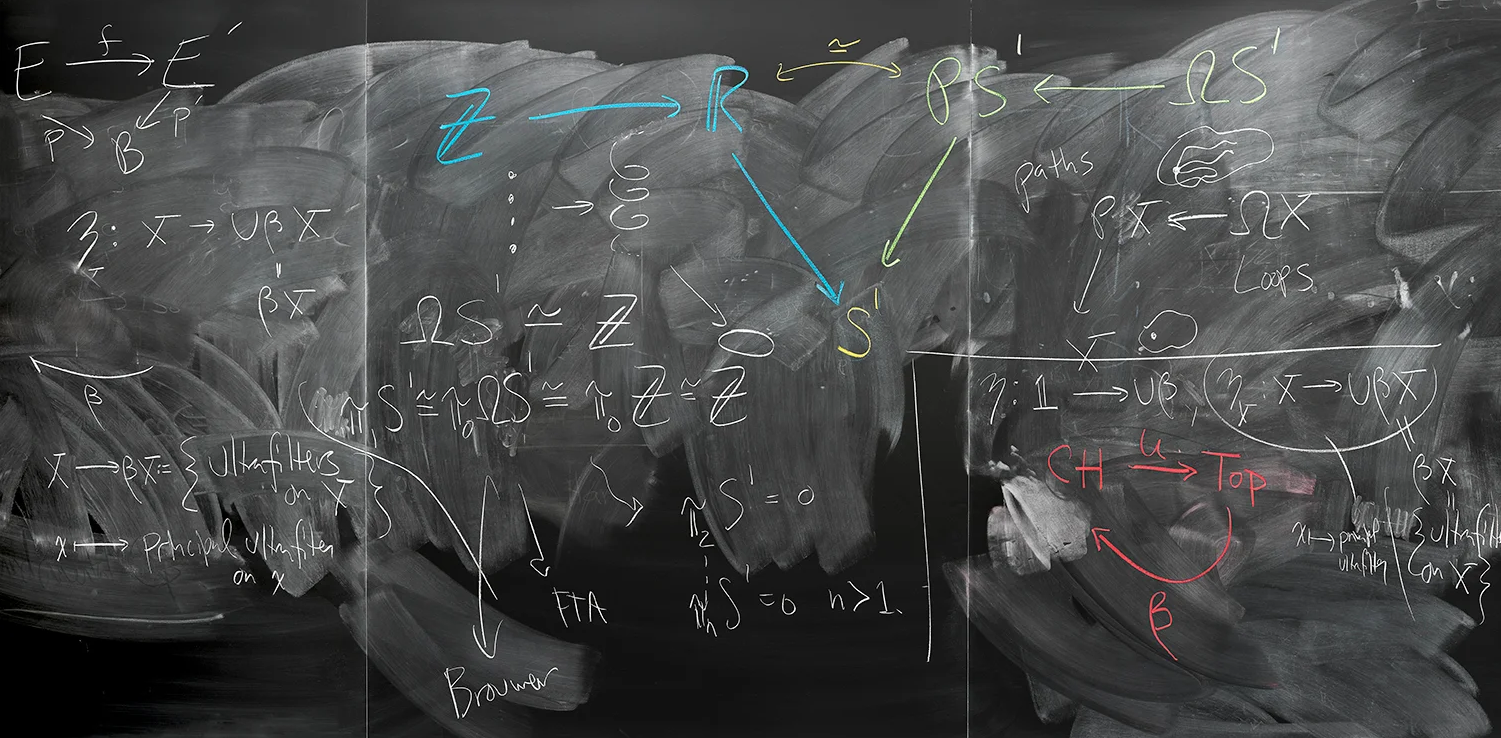 E —f→ E′
p ↘ B ↙ p′
η: X → UβX
"
βX
β
X ⟶ βX = { Ultrafilters on X }
x ⟼ principal ultrafilter on x
ℤ ⟶ ℝ ≃ PS¹ ⟵ ΩS¹
S¹
ΩS¹ ≃ ℤ
π₁S¹ ≅ π₀ΩS¹ ≅ π₀ℤ ≅ ℤ
π₂S¹ = 0
πₙS¹ = 0 n > 1.
FTA
Brouwer
paths
PX ⟵ ΩX
Loops
X
η: 1 ⟶ Uβ, (η_X: X ⟶ UβX)
βX
CH —U→ Top
β
x ↦ principal ultrafilter
{ Ultrafilters on X }